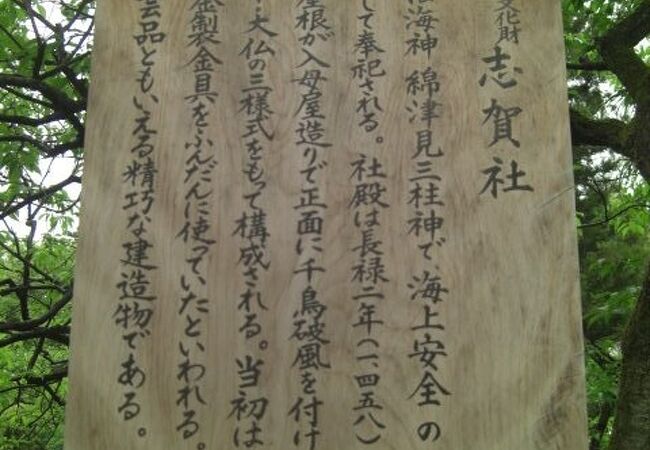 文化財 志賀社
海神 綿津見三柱神で、海上安全の
して奉祀される。社殿は長禄二年(一、四五八)
屋根が入母屋造りで正面に千鳥破風を付け
・大仏の三様式をもって構成される。当初は
金製金具をふんだんに使っていたといわれる。
芸品ともいえる精巧な建造物である。